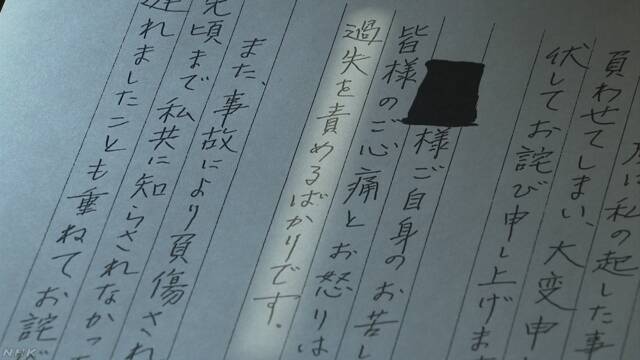 は私の起した事
負わせてしまい、大変申
伏してお詫び申し上げま
様ご自身のお苦し
皆様のご心痛とお怒りは
過失を責めるばかりです。
また、事故により負傷され
先頃まで私共に知らされなかっ
遅れましたことも重ねてお詫
NHK